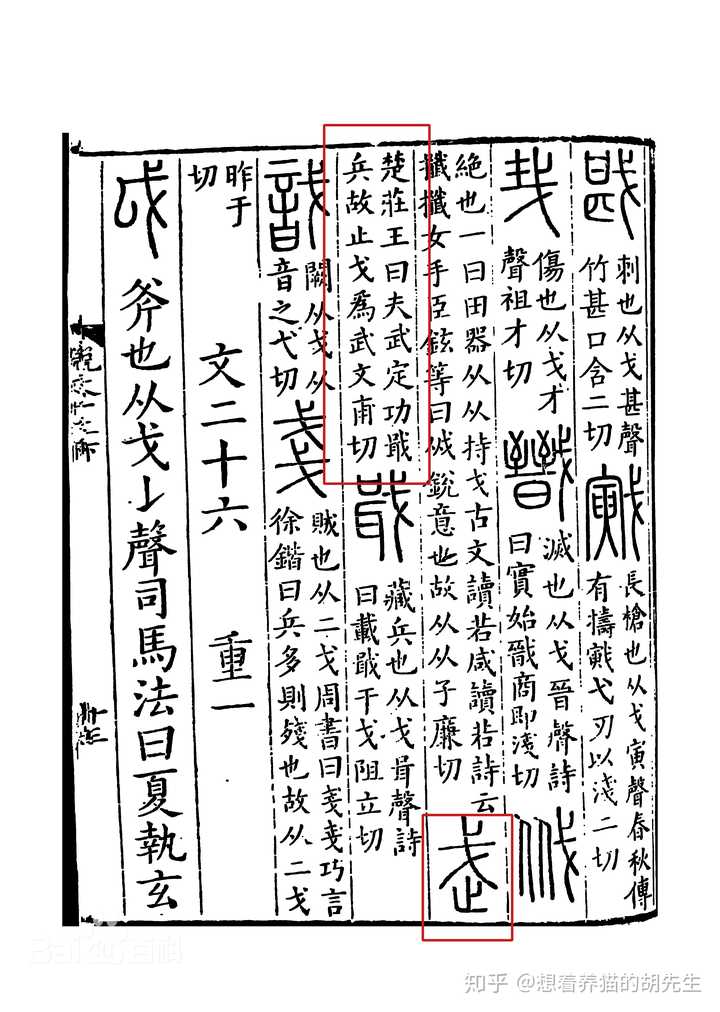 戡
刺也从戈甚聲
竹甚口含二切
戭
長槍也从戈寅聲春秋傳
有擣戭弋刃以淺二切
𢦏
傷也从戈才
聲祖才切
戩
滅也从戈晉聲詩
曰實始戩商即淺切
𢦟
絕也一曰田器从从持戈古文讀若咸讀若詩云
攕攕女手臣鉉等曰𢦟銳意也故从从子廉切
武
楚莊王曰夫武定功戢
兵故止戈爲武文甫切
戢
藏兵也从戈咠聲詩
曰載戢干戈阻立切
戠
闕从戈从
音之弋切
戔
賊也从二戈周書曰戔戔巧言
徐鍇曰兵多則殘也故从二戈
昨于
切
文二十六 重一
戉
斧也从戈𠄌聲司馬法曰夏執玄
Baidu百科
知乎 @想着养猫的胡先生